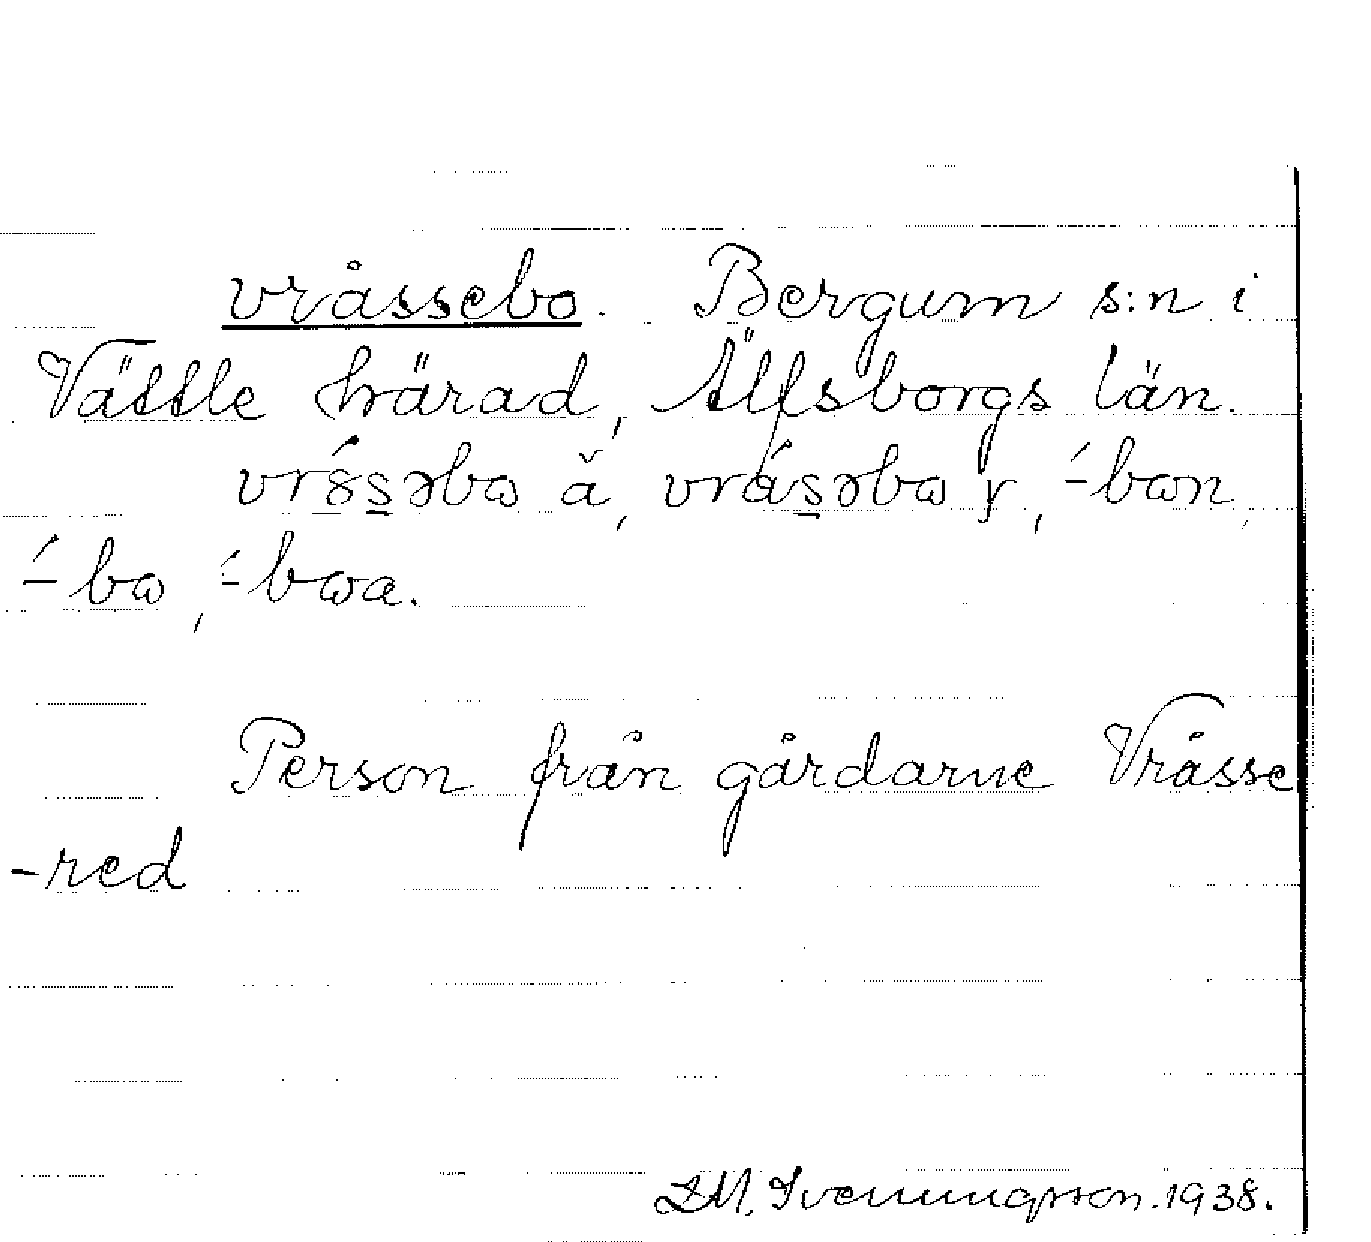 vråssebo. Bergum s:n i
Vättle härad, Älfsborgs län.
vrǿs̲əbɷ ǎ, vrás̲əbɷ r, ́-bɷn,
́-bɷ, ́-bɷa.
Person från gårdarne Vråsse
-red
L M. Svenningsson. 1938.